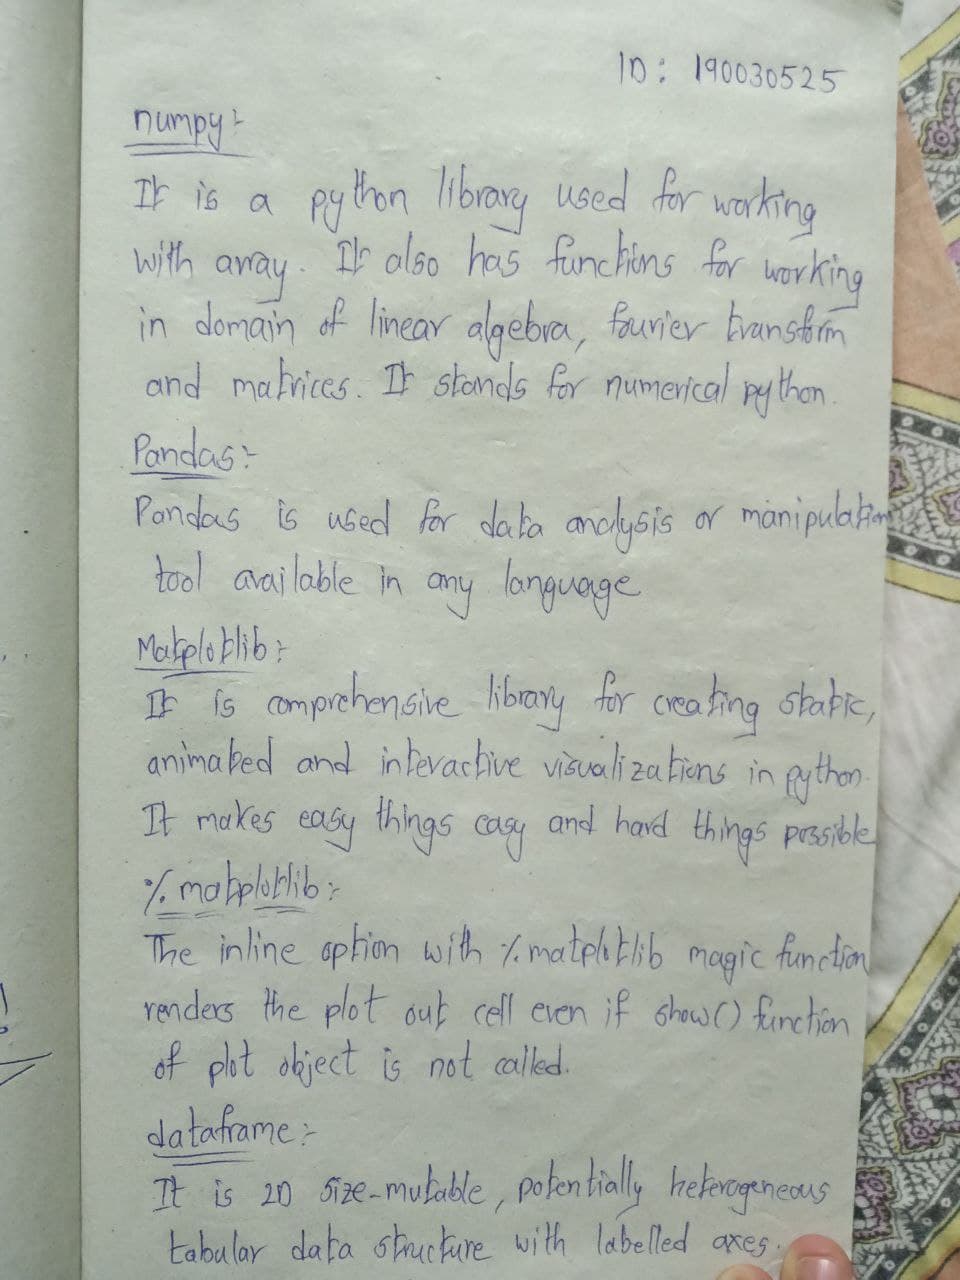 ID: 190030525
numpy:-
It is a python library used for working
with array. It also has functions for working
in domain of linear algebra, fourier transform
and matrices. It stands for numerical python.
Pandas:-
Pandas is used for data analysis or manipulation
tool available in any language
Matplotlib:-
It is comprehensive library for creating static,
animated and interactive visualizations in python.
It makes easy things easy and hard things possible
% matplotlib:-
The inline option with % matplotlib magic function
renders the plot out cell even if show() function
of plot object is not called.
dataframe:-
It is 2D size-mutable, potentially heterogeneous
tabular data structure with labelled axes.